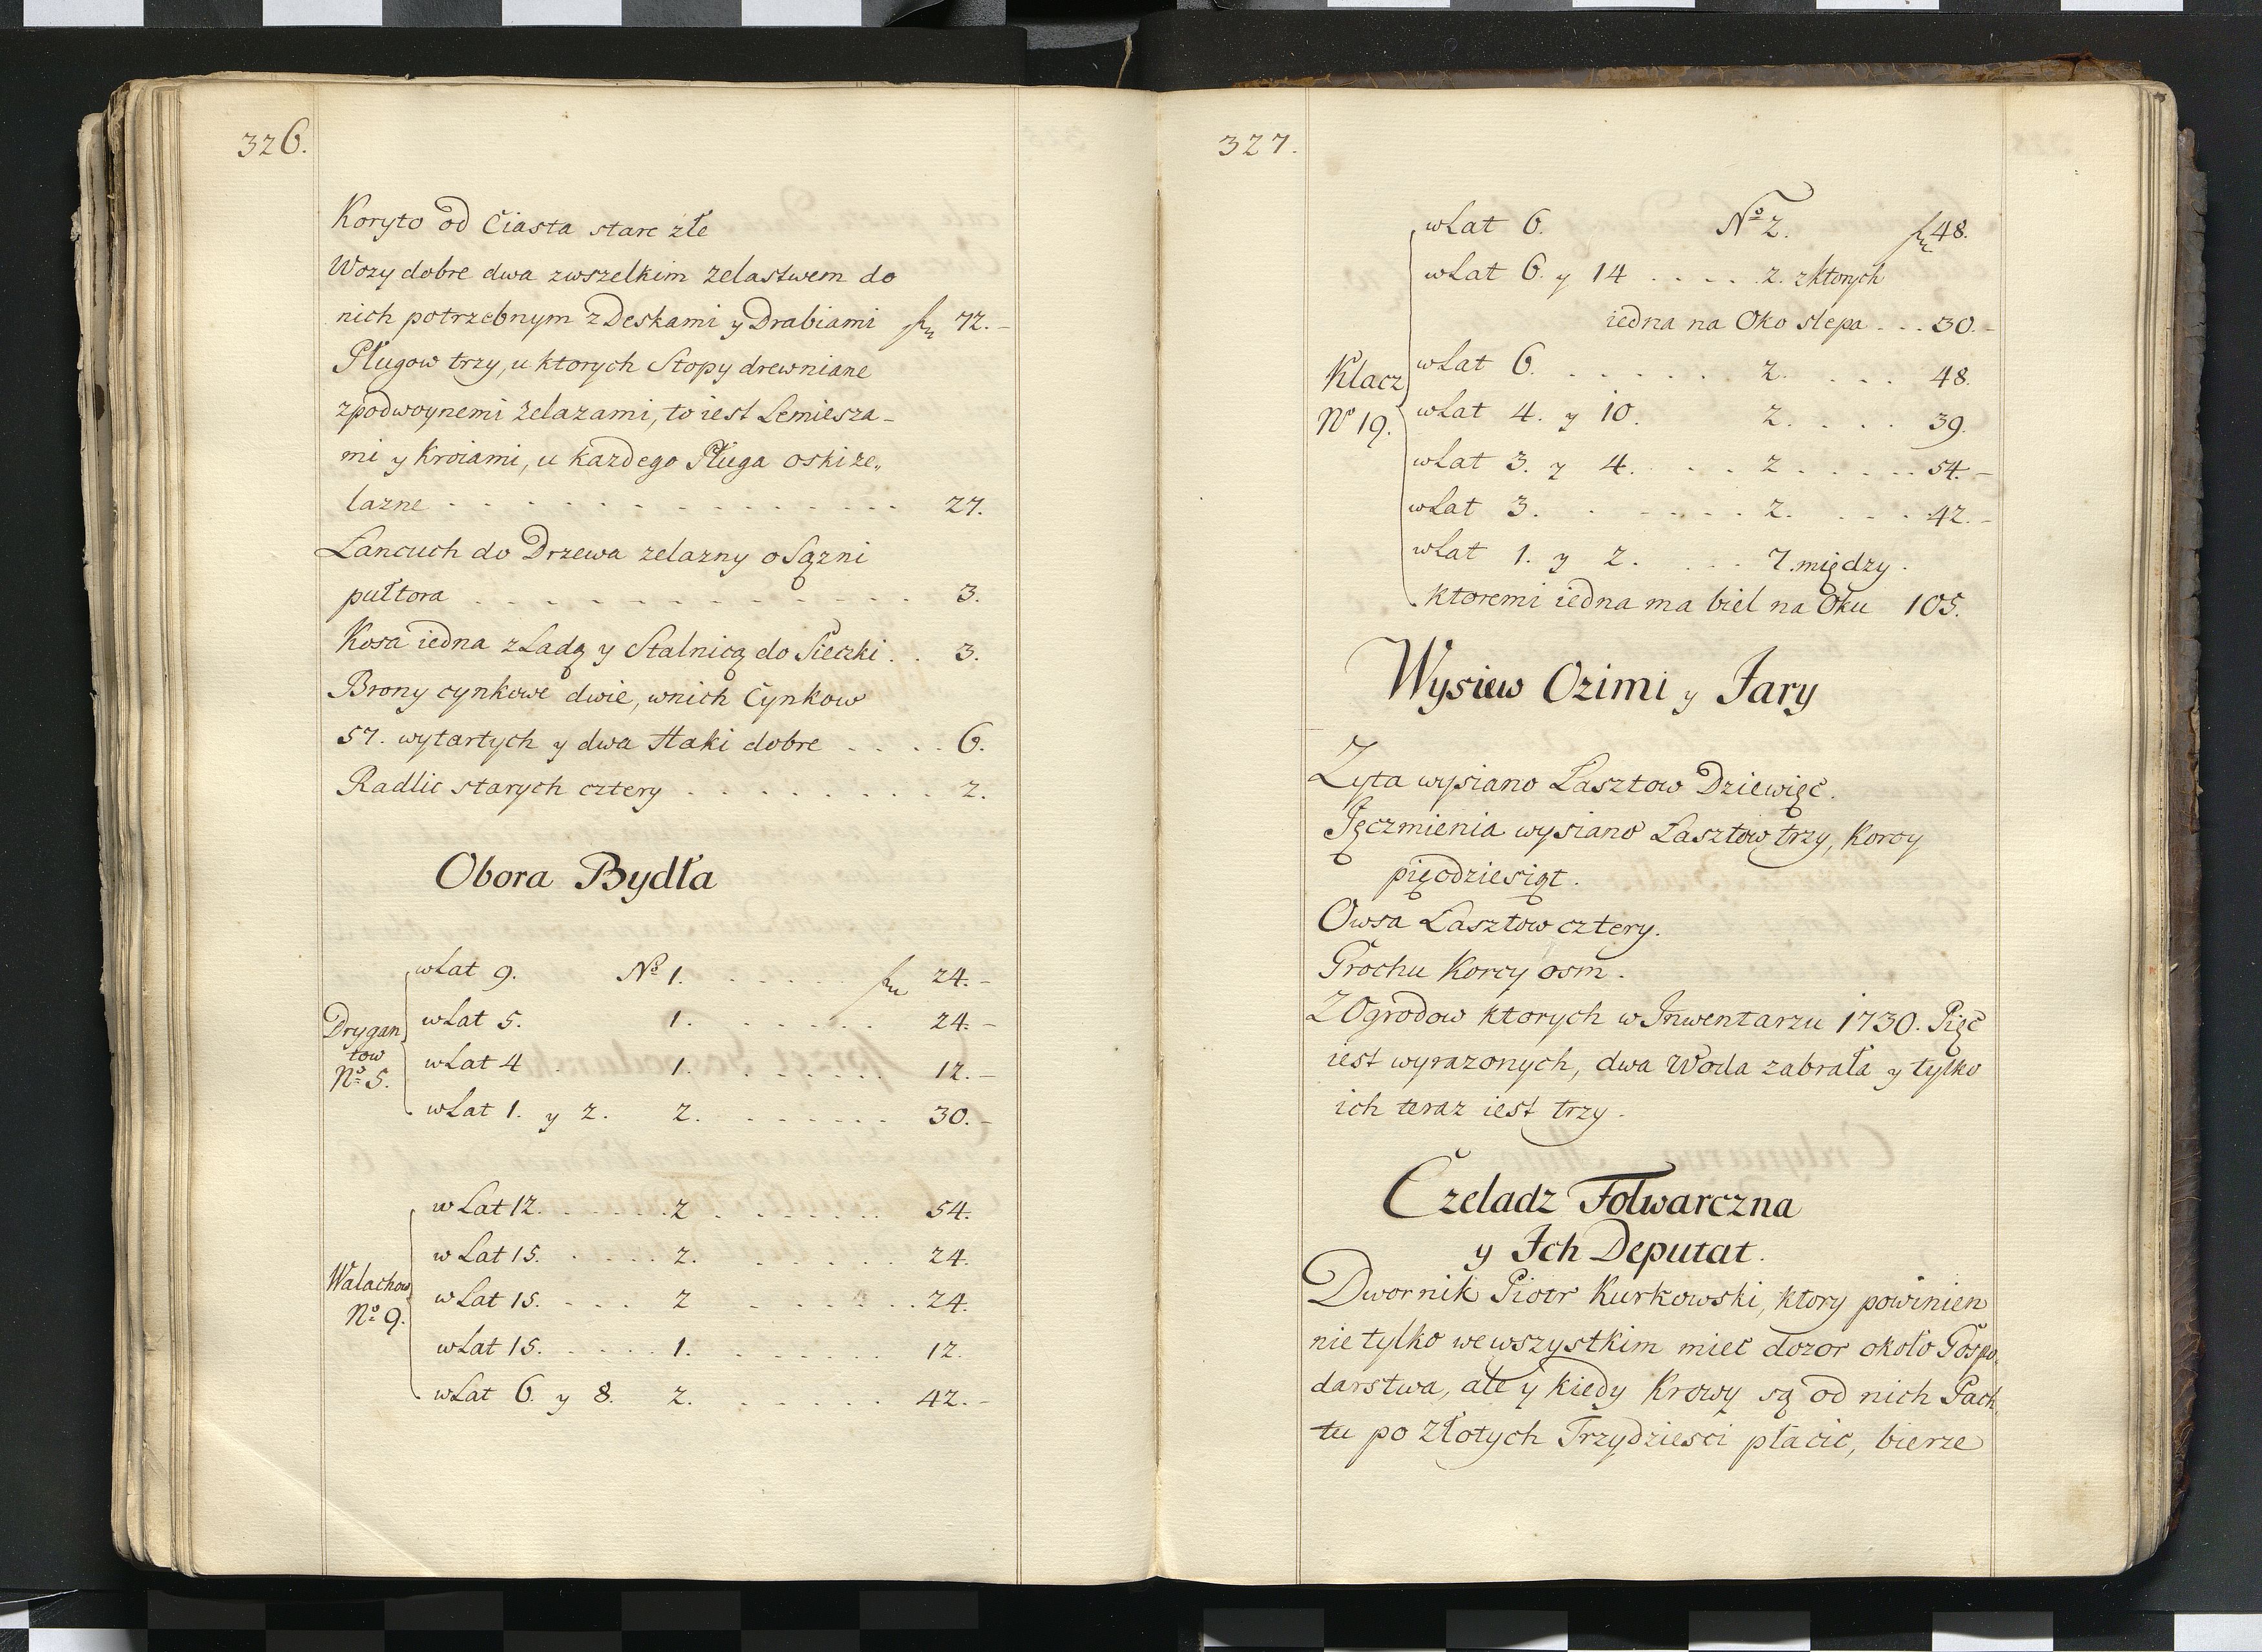 326.
Koryto od Ciasta stare złe
Wozy dobre dwa zwszelkim zelastwem do
nich potrzebnym z Deskami y Drabiami fn 72.-
Pługow trzy, u ktorych Stopy drewniane
zpodwoynemi żelazami, to iest Lemiesza-
mi y Kroiami, u kazdego Pługa oski że„
lazne . . . . . . . . . . . . . . 27.
Lancuch do Drzewa zelazny o Sązni
pułtora . . . . . . . . . . . . . 3.
Kosa iedna z Ladą y Stalnicą do Sieczki . . 3.
Brony cynkowe dwie, wnich Cynkow
57. wytartych y dwa Haki dobre . . . . 6.
Radlic starych cztery . . . . . . . . 2.
Obora Bydła
Drygan
tow
No 5.
wLat 9. No 1. . . . . . . fn 24.-
wLat 5. 1. . . . . . . 24.-
wLat 4 . 1. . . . . . . 12.-
wLat 1. y 2. 2. . . . . . . 30.-
Walachow
No 9.
wLat 12. . . . . . 2 . . . . . . 54.
wLat 15. . . . . 2. . . . . . . 24.
wLat 15. . . . 2 . . . . . . . 24.
wLat 15. . . . . 1. . . . . . . 12.
wLat 6. y 8. 2. . . . . . . 42.-
327.
Klacz
No 19.
wLat 6. No 2. fn 48.
wLat 6. y 14 . . . . 2. zktorych
iedna na Oko slepa . . . 30.-
wLat 6. . . . . . 2. . . . 48.
wLat 4. y 10. 2. . . . . 39.
wLat 3. y 4. . . . 2 . . . . . 54.-
wLat 3. . . . . . 2. . . . 42.-
wLat 1. y 2. . . . 7. między.
ktoremi iedna ma biel na Oku 105.
Wysiew Ozimi y Jary
Zyta wysiano Lasztow Dziewięć.
Jęczmienia wysiano Lasztow trzy, Korcy
pięcdziesiąt.
Owsa Lasztow cztery.
Grochu Korcy osm.
Z Ogrodow ktorych w Inwentarzu 1730. Pięć
iest wyrazonych, dwa Woda zabrała y tylko
ich teraz iest trzy.
Czeladz Folwarczna
y Ich Deputat.
Dwornik Piotr Kurkowski, ktory powinien
nie tylko we wszystkim mieć dozor około Gospo„
darstwa, ale y kiedy Krowy są od nich Pach„
tu po Złotych Trzydziesci płacic, bierze